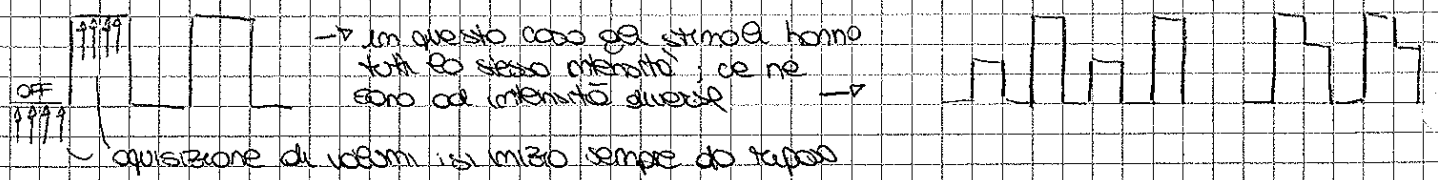 → in questo caso gli stimoli hanno
tutti la stessa intensità; ce ne
sono ad intensità diverse →
OFF
aquisizione di volumi, si inizia sempre da riposo